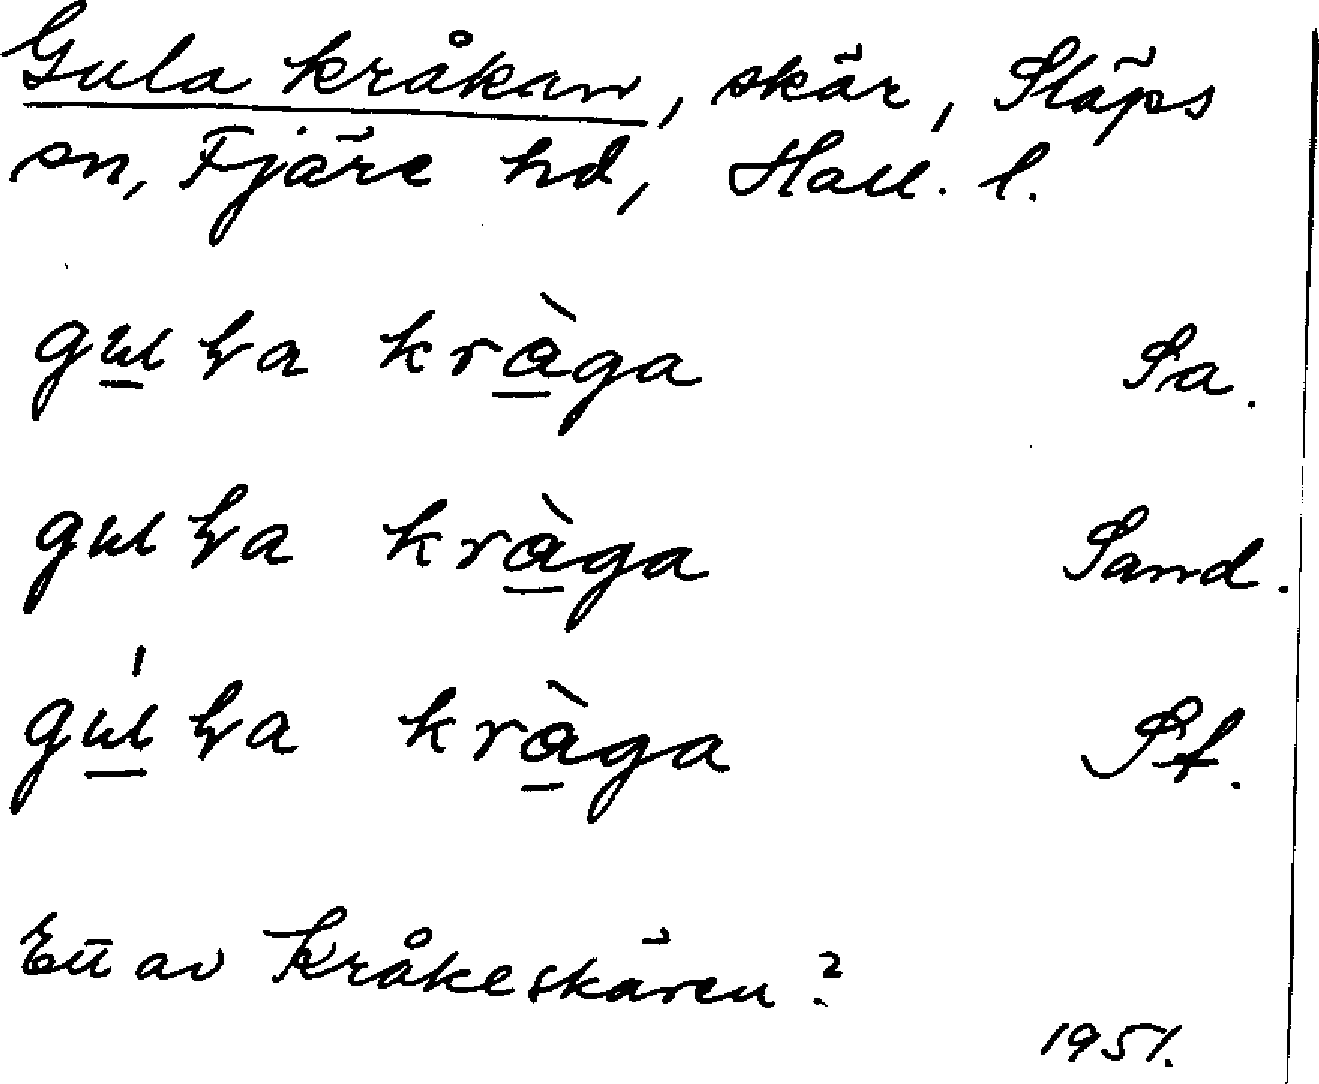 Gula kråkan, skär, Släps
sn, Fjäre hd, Hall. l.
gɯɫa kràga Sa.
gɯɫa kràga Sand.
gɯ́ɫa kràga St.
En av Kråkeskären?
1951.